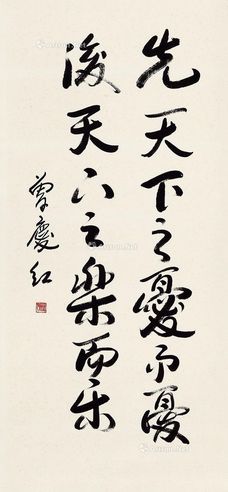 先天下之憂而憂
後天下之樂而乐
曾慶红